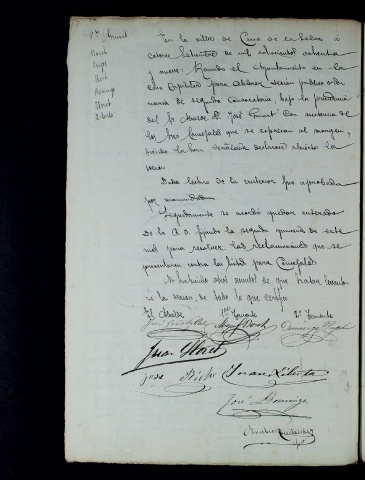 En la villa de Cassá de la Selva á
catorce Setiembre de mil ochocientos ochenta
y nueve: Reunido el Ayuntamiento en la
Casa Capitular para celebrar sesion publica ordi
naria de segunda convocatoria, bajo la presidencia
del Sr. Alcalde D. José con asistencia de
los Sres Concejales que se espresan al margen,
siendo la hora señalada declarose abierta la
sesion.
Dada lectura de la anterior fue aprobada
por unanimidad.
Seguidamente se acordó quedar enterado
de la R. O. fijando la segunda quincena de este
mes para resolver las reclamaciones que se
presentaren contra las listas para Concejales.
No habiendo otros asuntos de que tratar levantó
se la sesion, de todo lo que certifico.
El Alcalde 1er Teniente 2º Teniente
Juan Lloret
José Juan
José Domingo